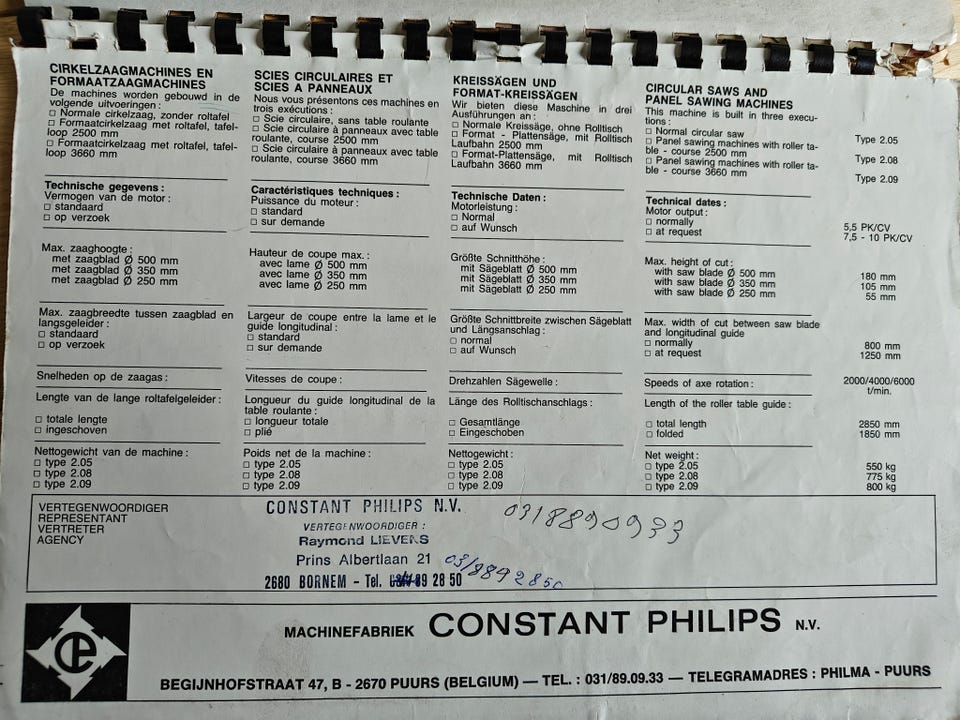 CIRKELZAAGMACHINES EN
FORMAATZAAGMACHINES
De machines worden gebouwd in de
volgende uitvoeringen :
□ Normale cirkelzaag, zonder roltafel
□ Formaatcirkelzaag met roltafel, tafel-
loop 2500 mm
□ Formaatcirkelzaag met roltafel, tafel-
loop 3660 mm
Technische gegevens :
Vermogen van de motor :
□ standaard
□ op verzoek
Max. zaaghoogte :
met zaagblad Ø 500 mm
met zaagblad Ø 350 mm
met zaagblad Ø 250 mm
Max. zaagbreedte tussen zaagblad en
langsgeleider :
□ standaard
□ op verzoek
Snelheden op de zaagas :
Lengte van de lange roltafelgeleider :
□ totale lengte
□ ingeschoven
Nettogewicht van de machine :
□ type 2.05
□ type 2.08
□ type 2.09
SCIES CIRCULAIRES ET
SCIES A PANNEAUX
Nous vous présentons ces machines en
trois exécutions :
□ Scie circulaire, sans table roulante
□ Scie circulaire à panneaux avec table
roulante, course 2500 mm
□ Scie circulaire à panneaux avec table
roulante, course 3660 mm
Caractéristiques techniques :
Puissance du moteur :
□ standard
□ sur demande
Hauteur de coupe max. :
avec lame Ø 500 mm
avec lame Ø 350 mm
avec lame Ø 250 mm
Largeur de coupe entre la lame et le
guide longitudinal :
□ standard
□ sur demande
Vitesses de coupe :
Longueur du guide longitudinal de la
table roulante :
□ longueur totale
□ plié
Poids net de la machine :
□ type 2.05
□ type 2.08
□ type 2.09
KREISSÄGEN UND
FORMAT-KREISSÄGEN
Wir bieten diese Maschine in drei
Ausführungen an :
□ Normale Kreissäge, ohne Rolltisch
□ Format - Plattensäge, mit Rolltisch
Laufbahn 2500 mm
□ Format-Plattensäge, mit Rolltisch
Laufbahn 3660 mm
Technische Daten :
Motorleistung :
□ Normal
□ auf Wunsch
Größte Schnitthöhe :
mit Sägeblatt Ø 500 mm
mit Sägeblatt Ø 350 mm
mit Sägeblatt Ø 250 mm
Größte Schnittbreite zwischen Sägeblatt
und Längsanschlag :
□ normal
□ auf Wunsch
Drehzahlen Sägewelle :
Länge des Rolltischanschlags :
□ Gesamtlänge
□ Eingeschoben
Nettogewicht :
□ type 2.05
□ type 2.08
□ type 2.09
CIRCULAR SAWS AND
PANEL SAWING MACHINES
This machine is built in three execu-
tions :
□ Normal circular saw Type 2.05
□ Panel sawing machines with roller ta-
ble - course 2500 mm Type 2.08
□ Panel sawing machines with roller ta-
ble - course 3660 mm Type 2.09
Technical dates :
Motor output :
□ normally 5,5 PK/CV
□ at request 7,5 - 10 PK/CV
Max. height of cut :
with saw blade Ø 500 mm 180 mm
with saw blade Ø 350 mm 105 mm
with saw blade Ø 250 mm 55 mm
Max. width of cut between saw blade
and longitudinal guide
□ normally 800 mm
□ at request 1250 mm
Speeds of axe rotation : 2000/4000/6000
t/min.
Length of the roller table guide :
□ total length 2850 mm
□ folded 1850 mm
Net weight :
□ type 2.05 550 kg
□ type 2.08 775 kg
□ type 2.09 800 kg
VERTEGENWOORDIGER
REPRESENTANT
VERTRETER
AGENCY
CONSTANT PHILIPS N.V.
VERTEGENWOORDIGER :
Raymond LIEVENS
Prins Albertlaan 21
2680 BORNEM - Tel. 89 28 50
03/8892850
03/8890933
MACHINEFABRIEK CONSTANT PHILIPS N.V.
BEGIJNHOFSTRAAT 47, B - 2670 PUURS (BELGIUM) — TEL. : 031/89.09.33 — TELEGRAMADRES : PHILMA - PUURS